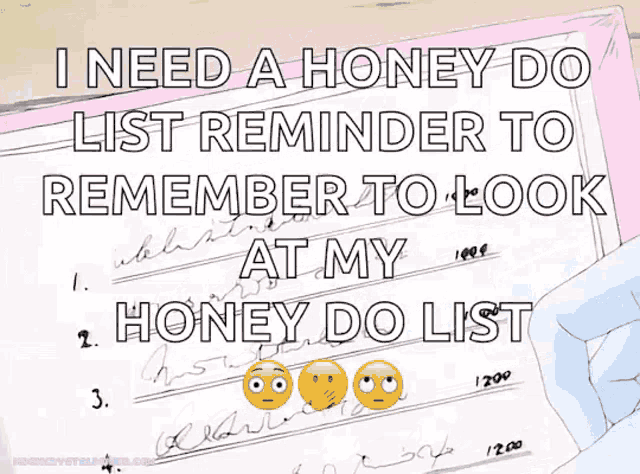 I NEED A HONEY DO
LIST REMINDER TO
REMEMBER TO LOOK
AT MY
HONEY DO LIST
😳🤭🙄
1.
1000
2.
3.
1200
4.
1200